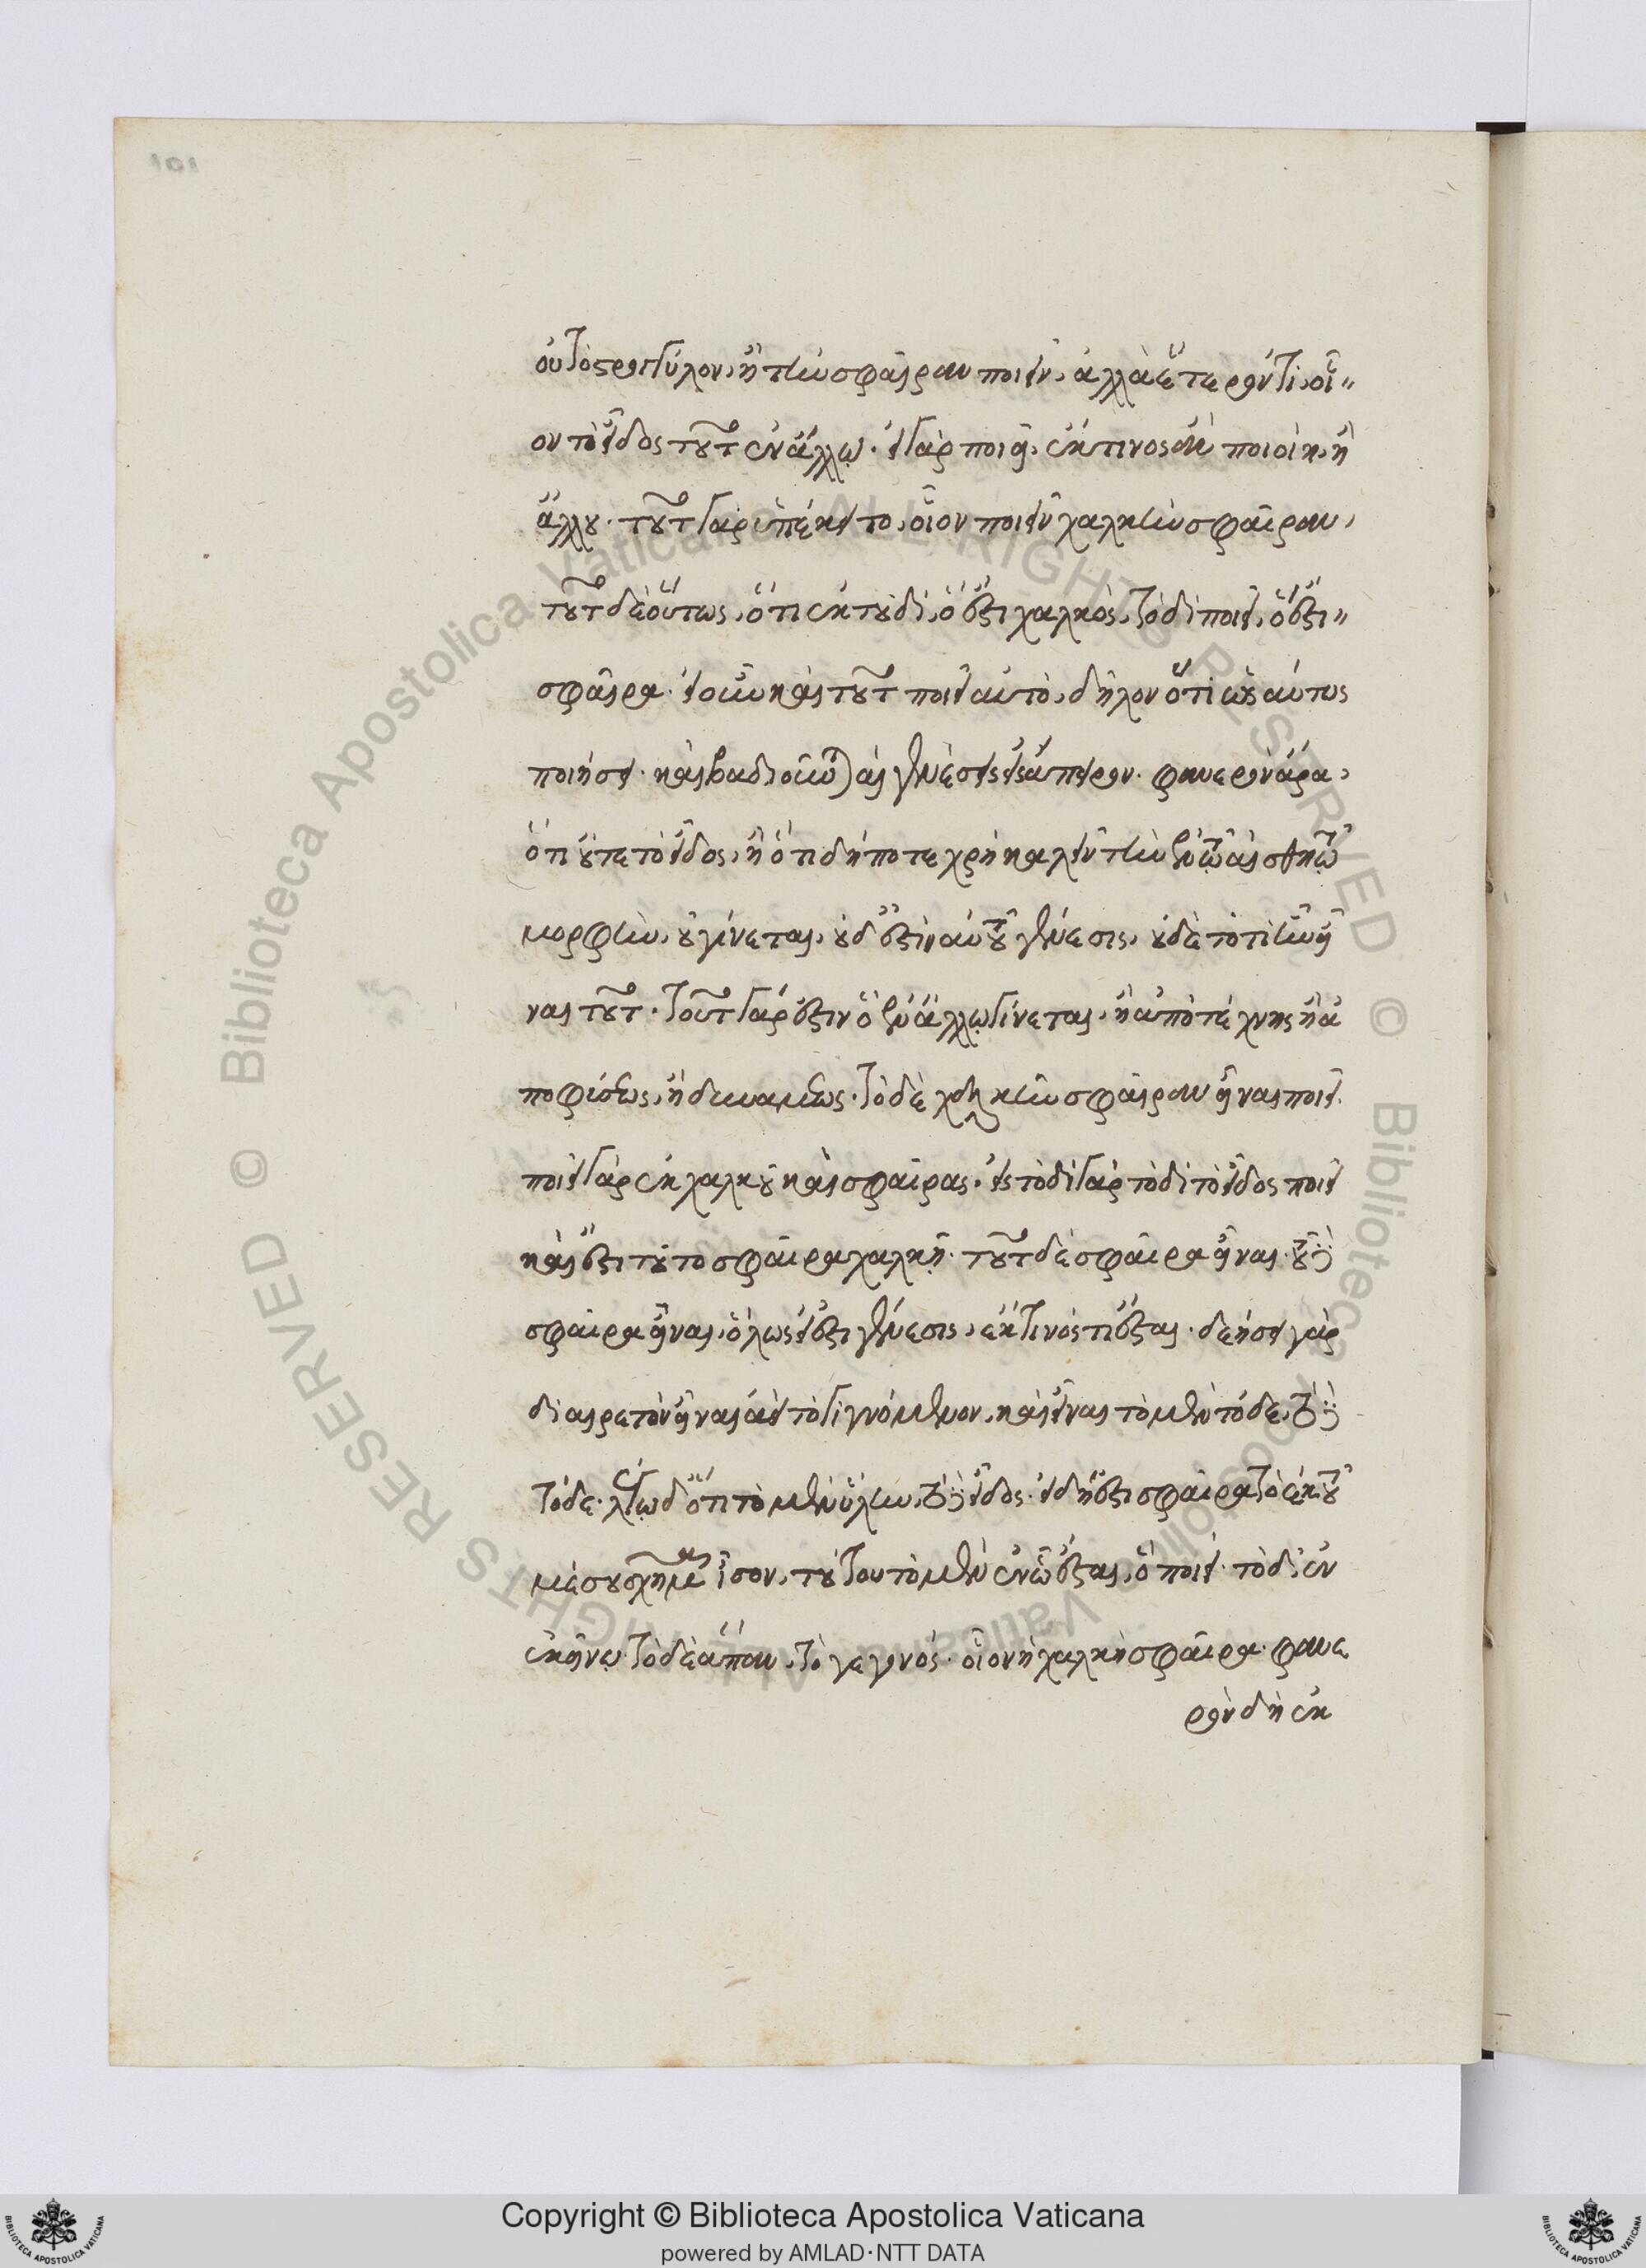 101
οὐ τὸ στρογγύλον, ἢ τὴν σφαῖραν ποιεῖν, ἀλλὰ ἕτερόν τι, οἷ
ον τὸ εἶδος τοῦτο ἐν ἄλλῳ· εἰ γὰρ ποιεῖ, ἐκ τινος ἂν ποιοίη, ἢ
ἄλλου· τοῦτο γὰρ ὑπέκειτο, οἷον ποιεῖν χαλκὴν σφαῖραν,
τοῦτο δὲ οὕτως, ὅτι ἐκ τουδὶ, ὅ ἐστι χαλκὸς, τοδὶ ποιεῖ, ὅ ἐστι
σφαῖρα· εἰ οὖν καὶ τοῦτο ποιεῖ αὐτὸ, δῆλον ὅτι ὡσαύτως
ποιήσει· καὶ βαδιοῦνται αἱ γενέσεις εἰς ἄπειρον· φανερὸν ἄρα,
ὅτι οὔτε τὸ εἶδος, ἢ ὅτι δήποτε χρὴ καλεῖν τὴν ἐν τῷ αἰσθητῷ
μορφὴν, οὐ γίνεται, οὐδ' ἔστιν αὐτοῦ γένεσις, οὐδὲ τὸ τί ἦν εἶ
ναι τοῦτο· τοῦτο γάρ ἐστιν ὃ ἐν ἄλλῳ γίνεται, ἢ ἀπὸ τέχνης ἢ ἀ
πὸ φύσεως, ἢ δυνάμεως· τὸ δὲ χαλκῆν σφαῖραν εἶναι ποιεῖ·
ποιεῖ γὰρ ἐκ χαλκοῦ καὶ σφαίρας· εἰς τοδὶ γὰρ τοδὶ τὸ εἶδος ποιεῖ
καὶ ἔστι τοῦτο σφαῖρα χαλκῆ· τοῦτο δὲ σφαῖρα εἶναι· τοῦ δὲ
σφαῖρα εἶναι, ὅλως εἰ ἔστι γένεσις, ἔκ τινός τι ἔσται· δεήσει γὰρ
διαιρετὸν εἶναι ἀεὶ τὸ γιγνόμενον, καὶ εἶναι τὸ μὲν τόδε, τὸ δὲ
τόδε· λέγω δ' ὅτι τὸ μὲν ὕλην, τὸ δὲ εἶδος· εἰ δή ἐστι σφαῖρα τὸ ἐκ τοῦ
μέσου σχῆμα ἴσον, τούτου τὸ μὲν ἐν ᾧ ἔσται, ὃ ποιεῖ· τὸ δ' ἐν
ἐκείνῳ· τὸ δὲ ἅπαν, τὸ γεγονός· οἷον ἡ χαλκὴ σφαῖρα· φανε
ρὸν δὴ ἐκ
Copyright © Biblioteca Apostolica Vaticana
powered by AMLAD·NTT DATA